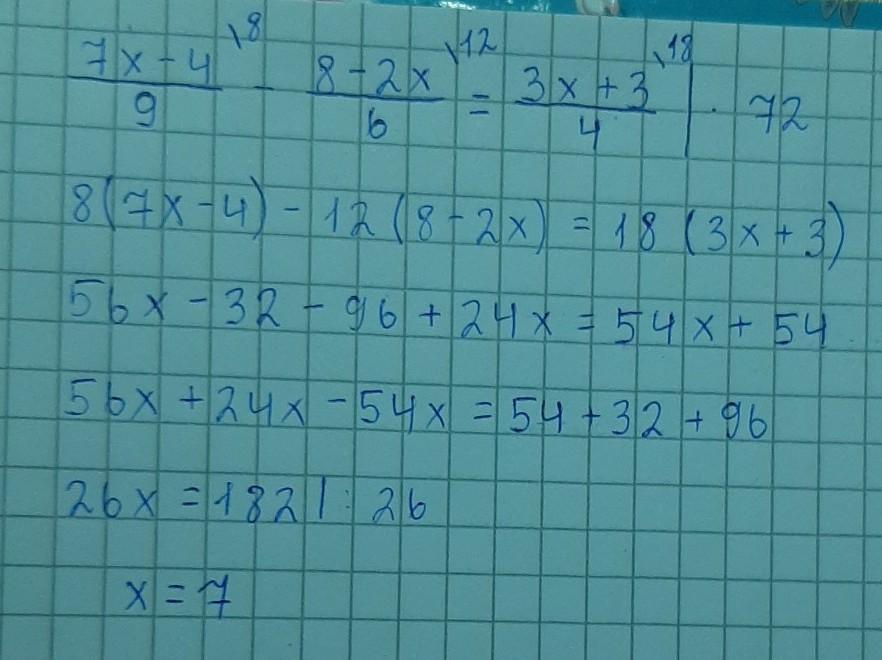 \frac{7x-4}{9}^{\8} - \frac{8-2x}{6}^{\12} = \frac{3x+3}{4}^{\18} | · 72
8(7x-4) - 12(8-2x) = 18(3x+3)
56x - 32 - 96 + 24x = 54x + 54
56x + 24x - 54x = 54 + 32 + 96
26x = 182 | : 26
x = 7